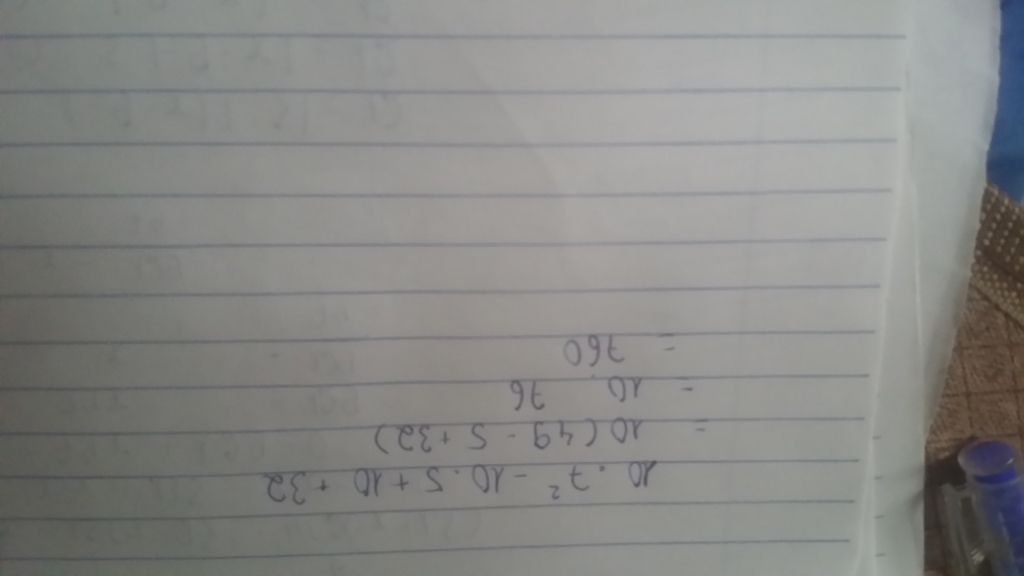 10 . 7² - 10 . 5 + 10 + 32
= 10 ( 49 - 5 + 32 )
= 10 . 76
= 760